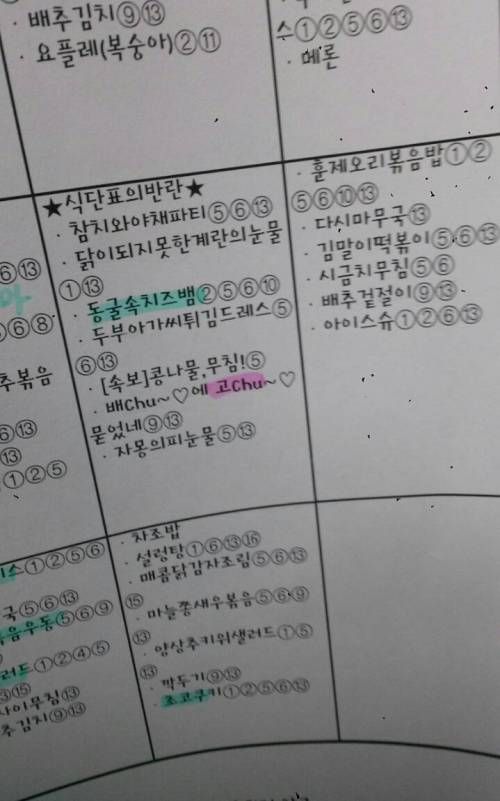 · 배추김치⑨⑬
· 요플레(복숭아)②⑪
수①②⑤⑥⑬
· 메론
⑥⑬
⑤⑥⑧
추볶음
⑥⑬
⑬
①②⑤
★식단표의반란★
· 참치와야채파티⑤⑥⑬
· 닭이되지못한계란의눈물
①⑬
· 동굴속치즈뱀②⑤⑥⑩
· 두부아가씨튀김드레스⑤
⑥⑬
· [속보]콩나물,무침!⑤
· 배chu~♡에 고chu~♡
묻었네⑨⑬
· 자몽의피눈물⑤⑬
· 훈제오리볶음밥①②
⑤⑥⑩⑬
· 다시마무국⑬
· 김말이떡볶이⑤⑥⑬
· 시금치무침⑤⑥
· 배추겉절이⑨⑬
· 아이스슈①②⑥⑬
스①②⑤⑥
국⑤⑥⑬
음우동⑤⑥⑨
러드①②④⑤
⑬⑮
사이무침⑬
추김치⑨⑬
· 차조밥
· 설렁탕①⑥⑬⑯
· 매콤닭감자조림⑤⑥⑬
⑮
· 마늘쫑새우볶음⑤⑥⑨
⑬
· 양상추키위샐러드①⑤
⑬
· 깍두기⑨⑬
· 초코쿠키①②⑤⑥⑬